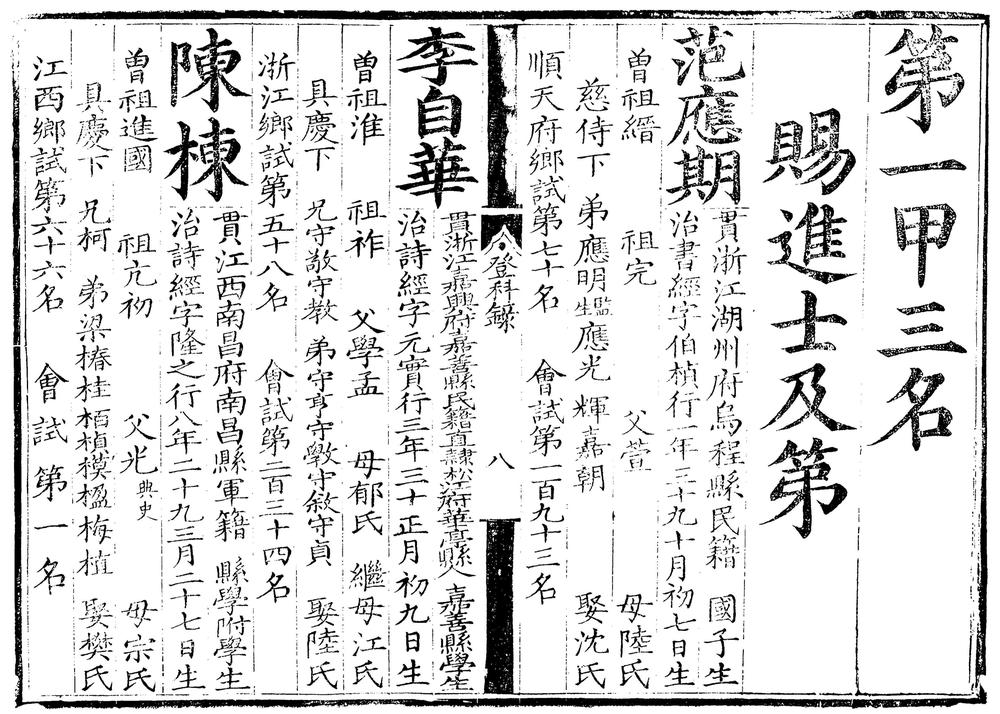 第一甲三名
賜進士及第
范應期
貫浙江湖州府烏程縣民籍 國子生
治書經字伯楨行一年三十九十月初七日生
曾祖縉 祖完 父萱 母陸氏
慈侍下 弟應明監生應光 輝嘉朝 娶沈氏
順天府鄉試第七十名 會試第一百九十三名
登科錄 八
李自華
貫浙江嘉興府嘉善縣民籍直隸松江府華亭縣人 嘉善縣學生
治詩經字元實行三年三十正月初九日生
曾祖淮 祖祚 父學孟 母郁氏 繼母江氏
具慶下 兄守敬守教 弟守亨守斆守敘守貞 娶陸氏
浙江鄉試第五十八名 會試第二百三十四名
陳棟
貫江西南昌府南昌縣軍籍 縣學附學生
治詩經字隆之行八年二十九三月二十七日生
曾祖進國 祖亢初 父光典史 母宗氏
具慶下 兄柯 弟梁椿桂栢楨模楹梅植 娶樊氏
江西鄉試第六十六名 會試第一名